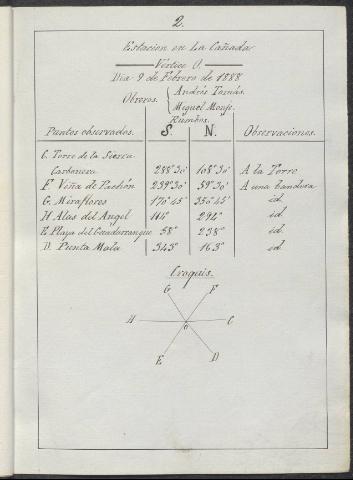 2.
Estacion en La Cañada
Vértice O.
Dia 9 de Febrero de 1888
Obreros. { Andrés Tomás.
Miguel
Rumbos.
Puntos observados. S. N. Observaciones.
C. Torre de la Sierra
Carbonera 288°30' 108°30' A la Torre
F Viña de Pachon 239°30' 59°30' A una bandera
G. Miraflores 170°45' 350°45' id.
H. Alas del Angel 114° 294° id.
E. Playa del Guadarranque 58° 238° id.
D. Punta Mala 343° 163° id.
Croquis.
G F
H O C
E D